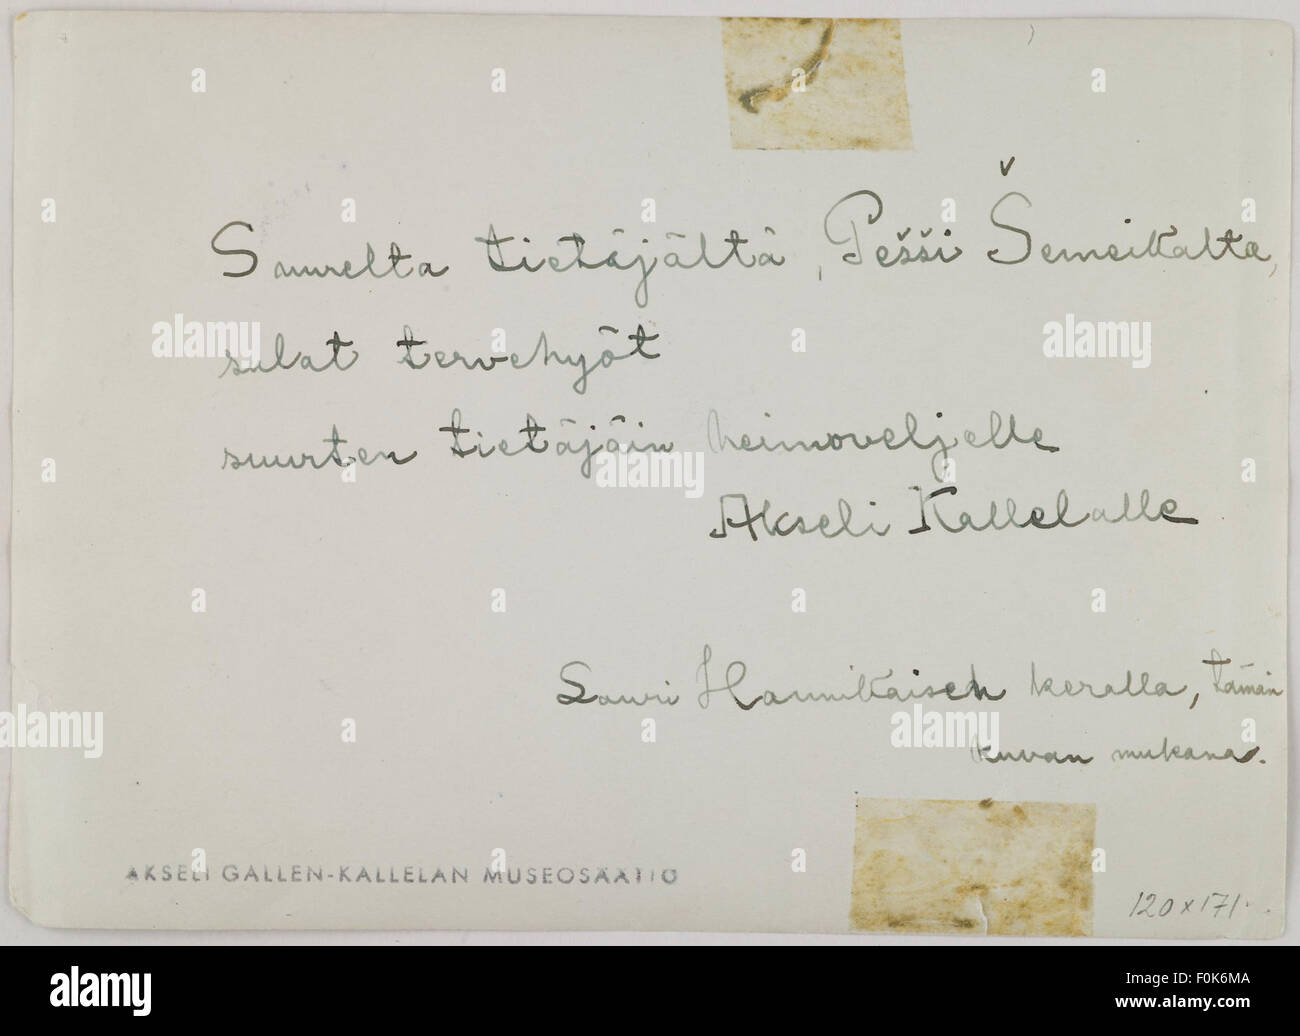 Suurelta tietäjältä, Pešši Šemeikalta,
sulat tervehyöt
suurten tietäjäin heimoveljelle
Akseli Kallelalle
Lauri Hannikaisen keralla, tämän
kuvan mukana.
AKSELI GALLEN-KALLELAN MUSEOSÄÄTIÖ
120 x 171
alamy
Image ID: F0K6MA
www.alamy.com